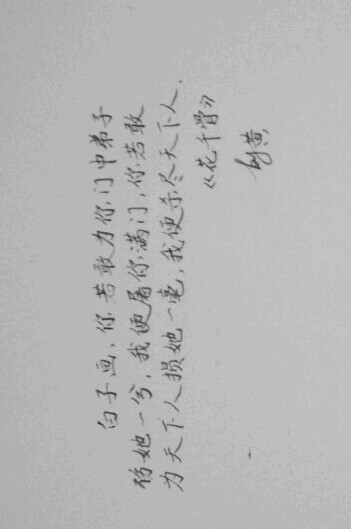 白子画、你若敢力你门中弟子
伤她一兮,我便屠你满门,你若敢
为天下人损她一毫,我便杀尽天下人.
《花千骨》
黄